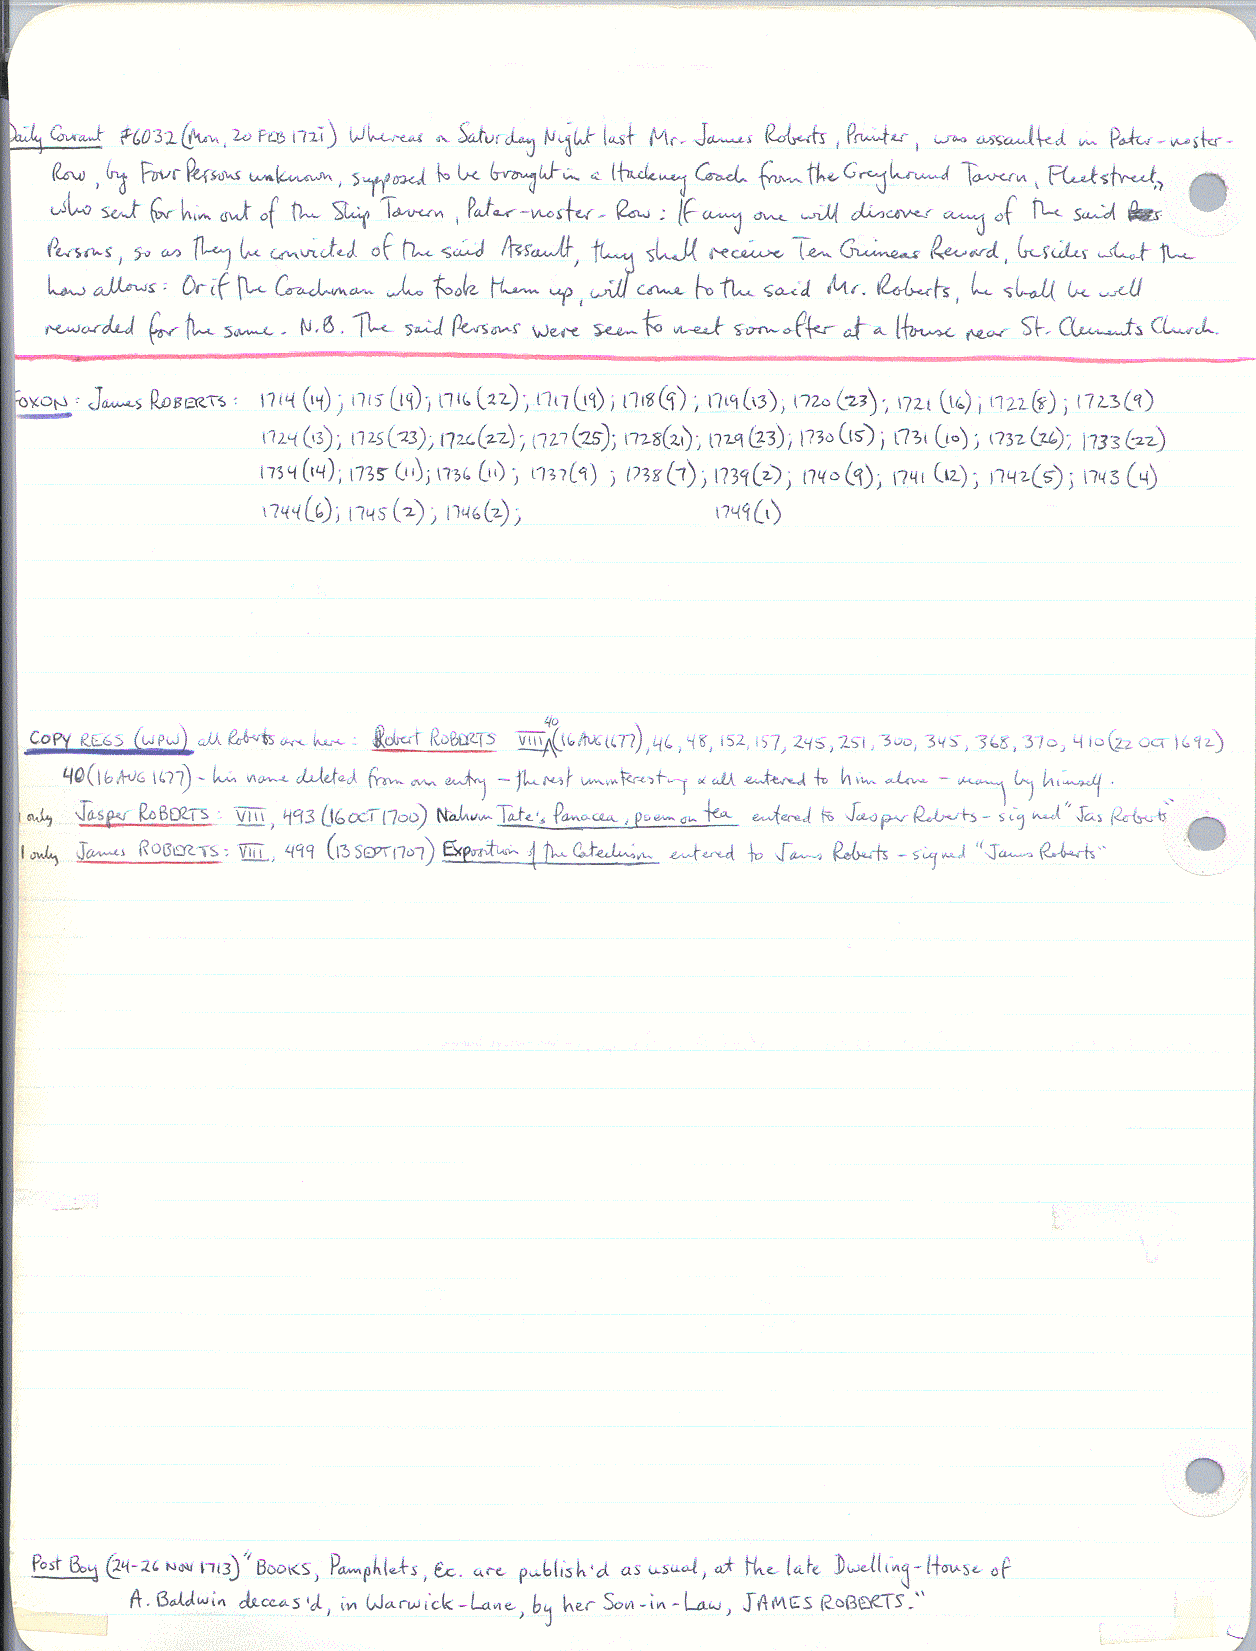 Daily Courant #6032 (Mon, 20 FEB 1721) Whereas on Saturday Night last Mr. James Roberts, Printer, was assaulted in Pater-noster-
Row, by Four Persons unknown, supposed to be brought in a Hackney Coach from the Greyhound Tavern, Fleetstreet,
who sent for him out of the Ship Tavern, Pater-noster-Row: If any one will discover any of the said
Persons, so as they be convicted of the said Assault, they shall receive Ten Guineas Reward, besides what the
Law allows: Or if the Coachman who took them up, will come to the said Mr. Roberts, he shall be well
rewarded for the same. N.B. The said Persons were seen to meet soon after at a House near St. Clements Church.
FOXON: James ROBERTS: 1714 (14); 1715 (19); 1716 (22); 1717 (19); 1718 (9); 1719 (13); 1720 (23); 1721 (16); 1722 (8); 1723 (9)
1724 (13); 1725 (23); 1726 (22); 1727 (25); 1728 (21); 1729 (23); 1730 (15); 1731 (10); 1732 (26); 1733 (22)
1734 (14); 1735 (11); 1736 (11); 1737 (9); 1738 (7); 1739 (2); 1740 (9); 1741 (12); 1742 (5); 1743 (4)
1744 (6); 1745 (2); 1746 (2); 1749 (1)
COPY REGS (WPW) all Roberts are here: Robert ROBERTS VIII, 40 (16 AUG 1677), 46, 48, 152, 157, 245, 251, 300, 345, 368, 370, 410 (22 OCT 1692)
40 (16 AUG 1677) - his name deleted from own entry - the rest uninteresting & all entered to him alone - many by himself.
1 only Jasper ROBERTS: VIII, 493 (16 OCT 1700) Nahum Tate's Panacea, poem on tea entered to Jasper Roberts - signed "Jas Roberts"
1 only James ROBERTS: VIII, 499 (13 SEPT 1707) Exposition of the Catechism entered to James Roberts - signed "James Roberts"
Post Boy (24-26 NOV 1713) "BOOKS, Pamphlets, &c. are publish'd as usual, at the late Dwelling-House of
A. Baldwin deceas'd, in Warwick-Lane, by her Son-in-Law, JAMES ROBERTS."